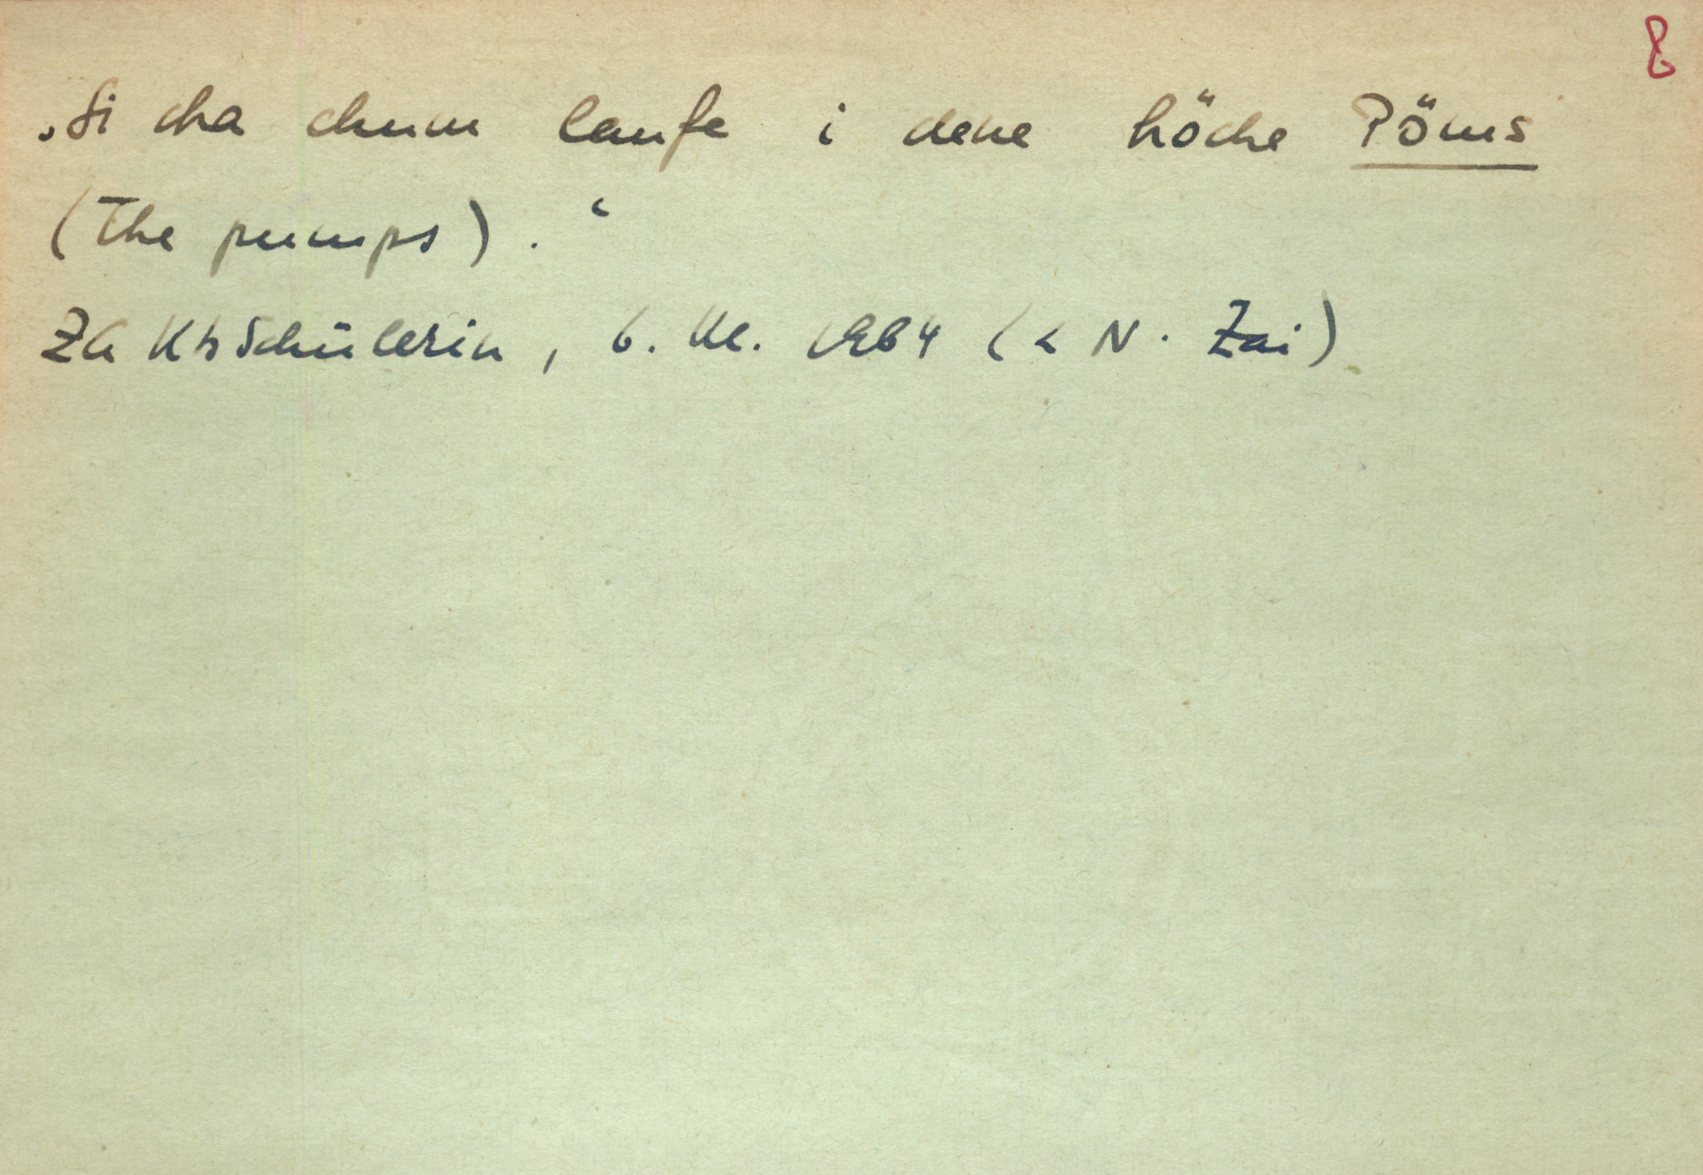 8
„Si cha chum laufe i dene höche Pöms
(The pumps).“
ZH KtsSchülerin, 6. Kl. 1964 (< N. Zai)